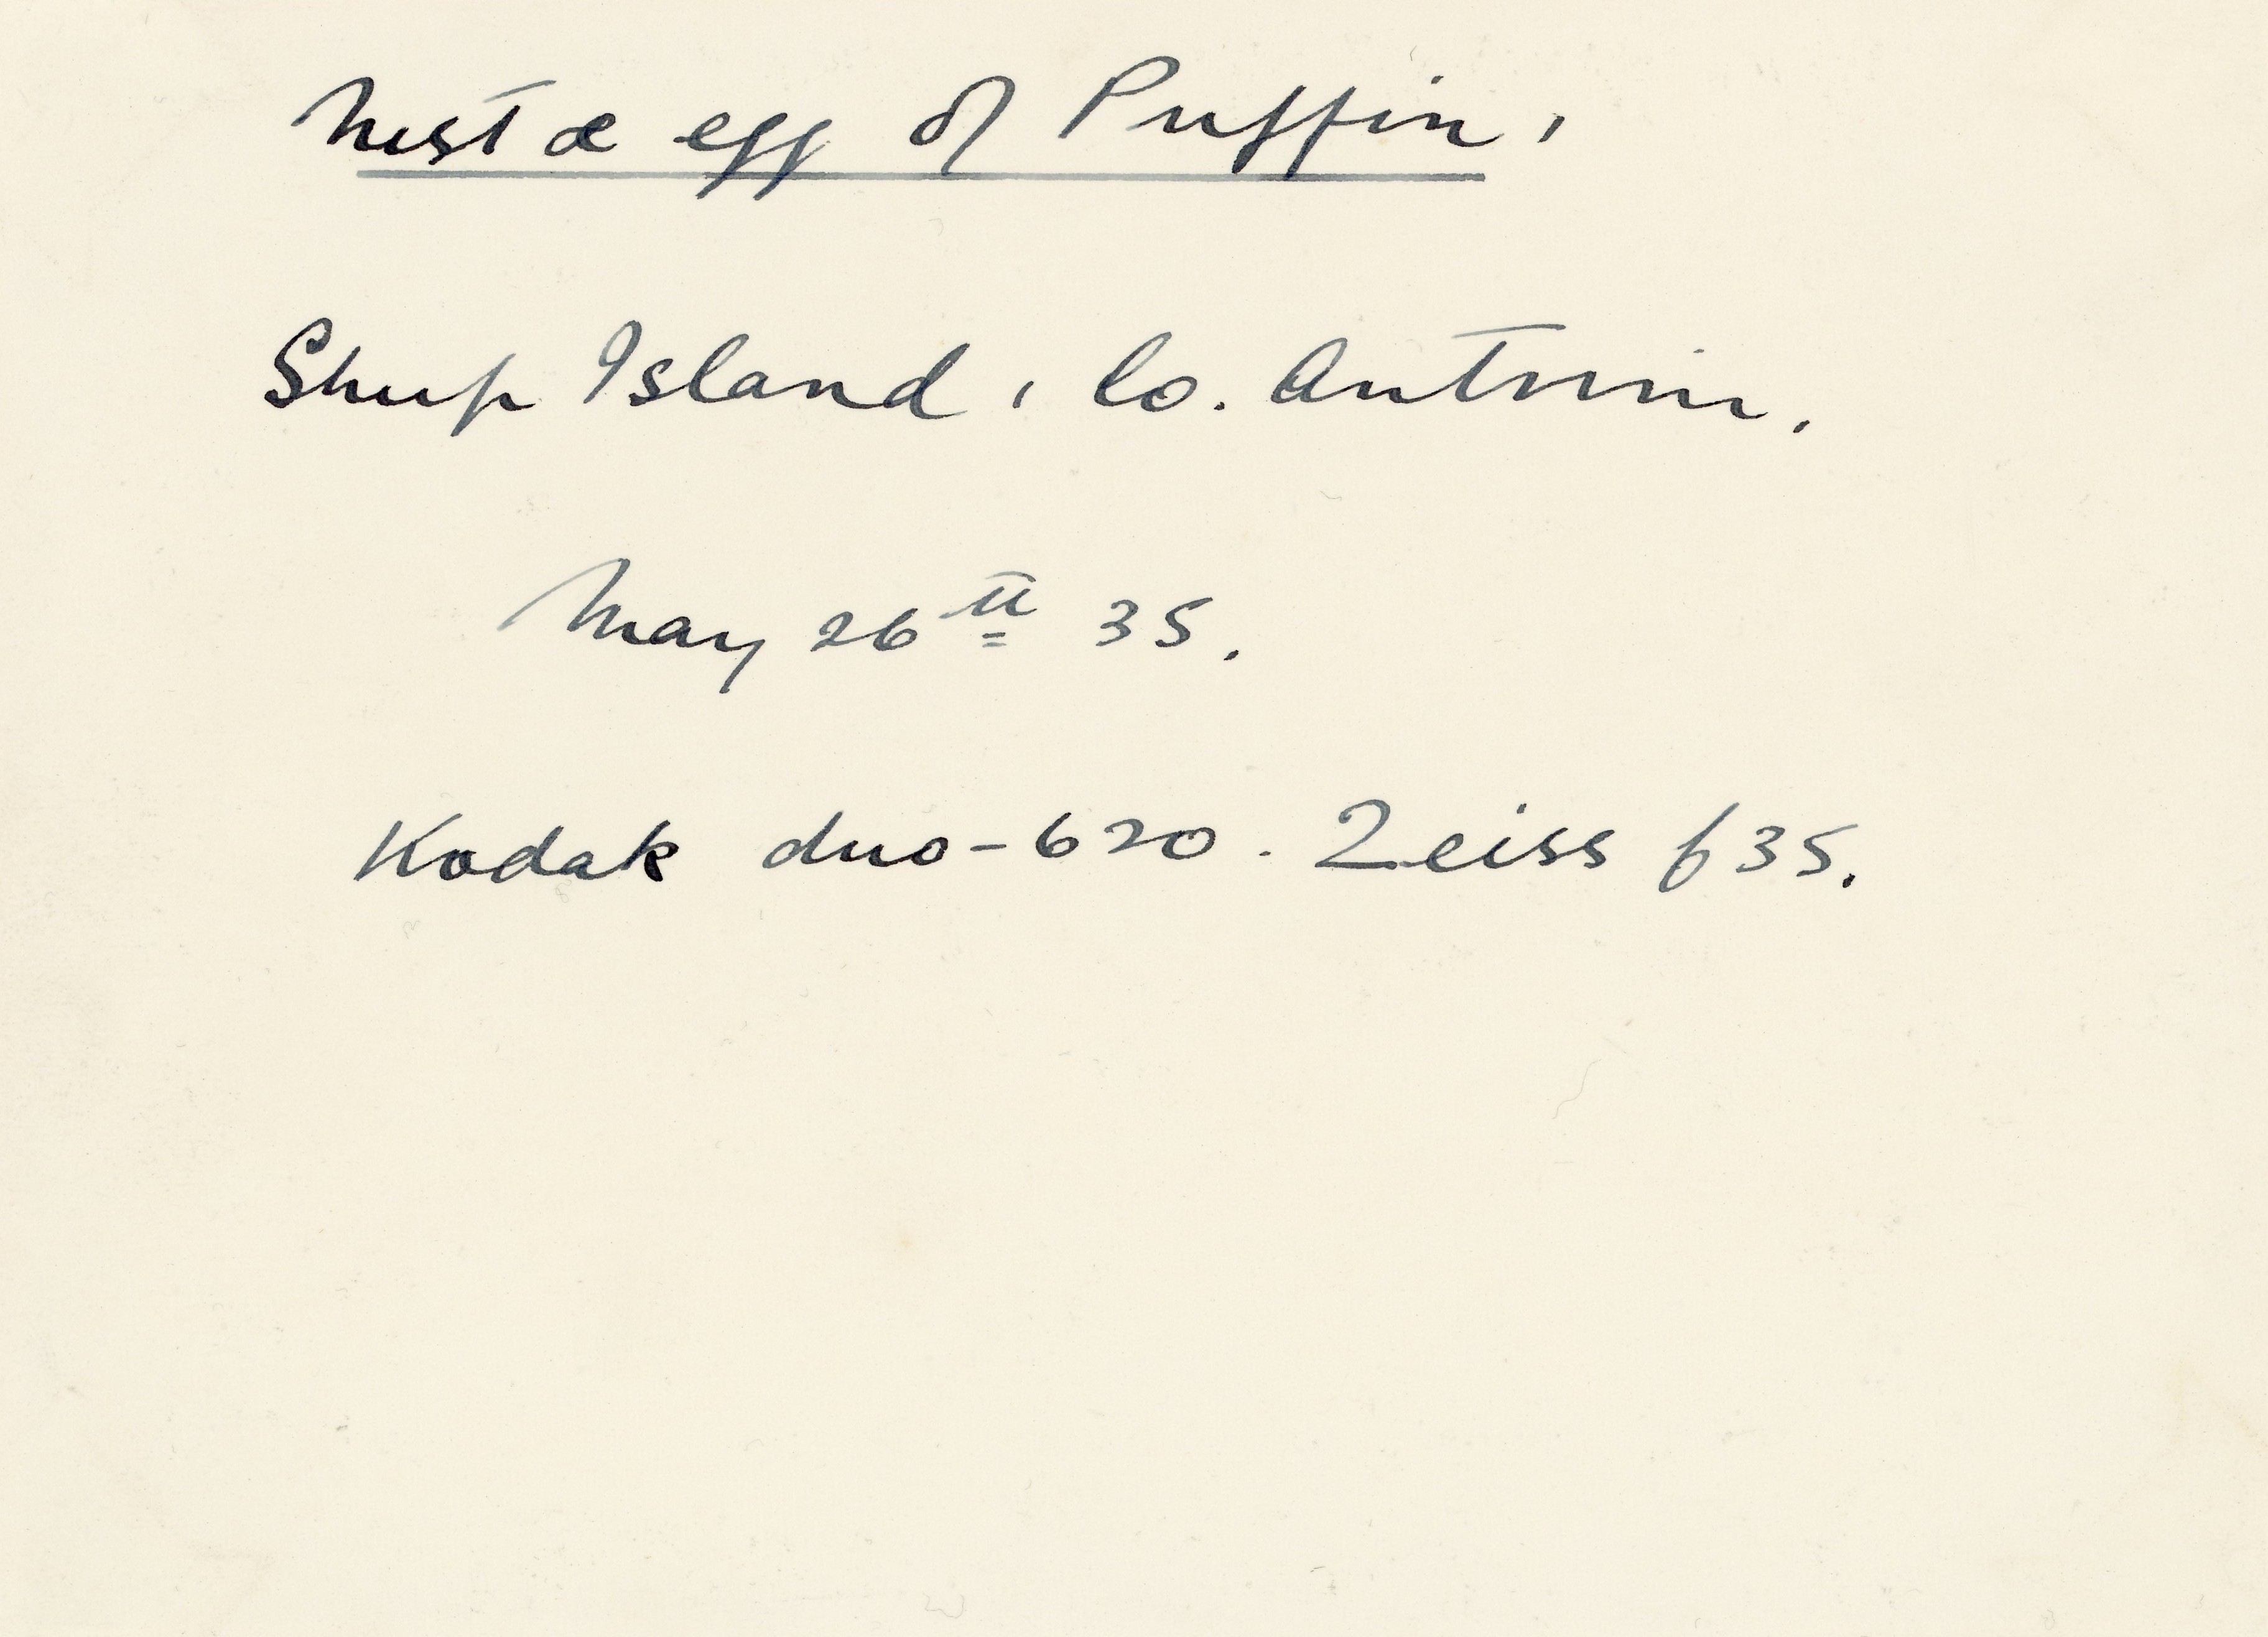 Nest & egg of Puffin,
Sheep Island, Co. Antrim.
May 26th 35.
Kodak duo-620. Zeiss f35.